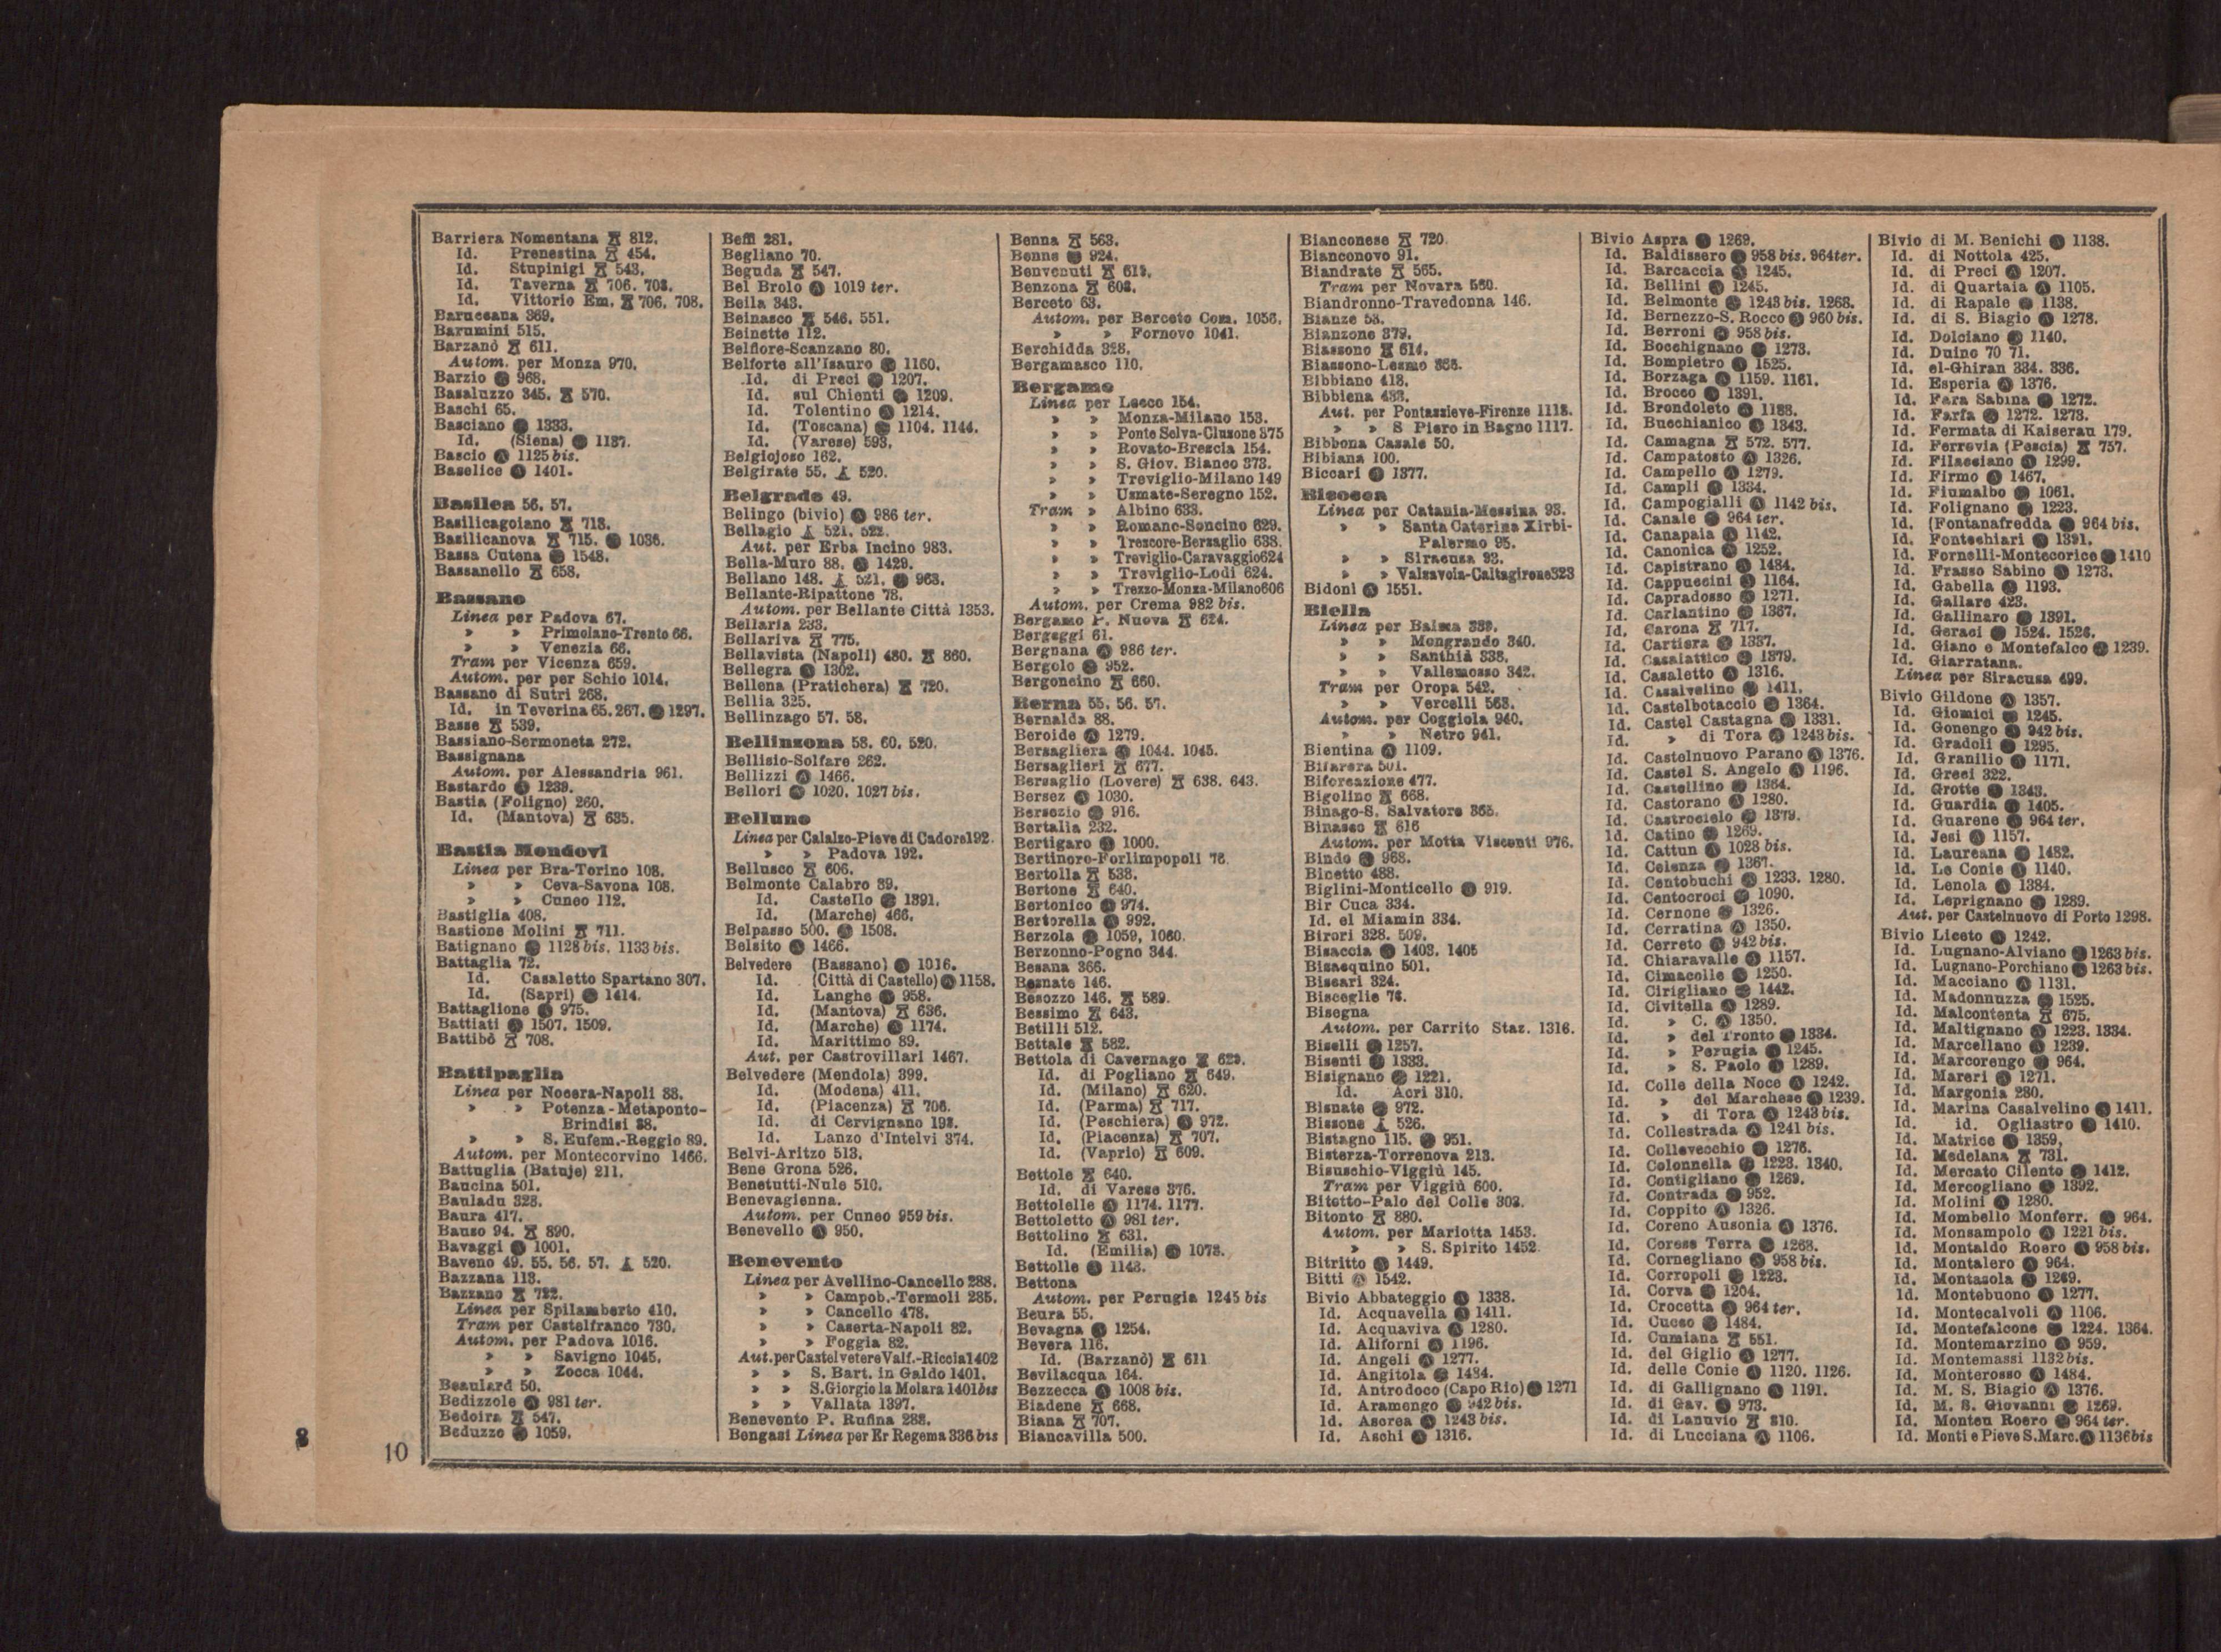 Barriera Nomentana 812.
Id. Prenestina 454.
Id. Stupinigi 543.
Id. Taverna 706. 708.
Id. Vittorio Em. 706. 708.
Baruccana 369.
Barumini 515.
Barzanò 611.
Autom. per Monza 970.
Barzio Ⓐ 968.
Basaluzzo 345. 570.
Baschi 65.
Basciano Ⓐ 1333.
Id. (Siena) Ⓐ 1137.
Bascio Ⓐ 1125 bis.
Baselice Ⓐ 1401.
Basilea 56. 57.
Basilicagoiano 718.
Basilicanova 715. Ⓐ 1036.
Bassa Cutena Ⓐ 1548.
Bassanello 658.
Bassano
Linea per Padova 67.
» » Primolano-Trento 66.
» » Venezia 66.
Tram per Vicenza 659.
Autom. per per Schio 1014.
Bassano di Sutri 268.
Id. in Teverina 65. 267. Ⓐ 1297.
Basse 539.
Bassiano-Sermoneta 272.
Bassignana
Autom. per Alessandria 961.
Bastardo Ⓐ 1239.
Bastia (Foligno) 260.
Id. (Mantova) 635.
Bastia Mondovì
Linea per Bra-Torino 108.
» » Ceva-Savona 108.
» » Cuneo 112.
Bastiglia 408.
Bastione Molini 711.
Batignano Ⓐ 1128 bis. 1133 bis.
Battaglia 72.
Id. Casaletto Spartano 307.
Id. (Sapri) Ⓐ 1414.
Battaglione Ⓐ 975.
Battiati Ⓐ 1507. 1509.
Battibò 708.
Battipaglia
Linea per Nocera-Napoli 88.
» » Potenza-Metaponto-
Brindisi 88.
» » S. Eufem.-Reggio 89.
Autom. per Montecorvino 1466.
Battuglia (Batuje) 211.
Baucina 501.
Bauladu 328.
Baura 417.
Bauso 94. 890.
Bavaggi Ⓐ 1001.
Baveno 49. 55. 56. 57. 520.
Bazzana 113.
Bazzano 722.
Linea per Spilamberto 410.
Tram per Castelfranco 730.
Autom. per Padova 1016.
» » Savigno 1045.
» » Zocca 1044.
Beaulard 50.
Bedizzole Ⓐ 981 ter.
Bedoira 547.
Beduzzo Ⓐ 1059.
Beffi 281.
Begliano 70.
Beguda 547.
Bel Brolo Ⓐ 1019 ter.
Beila 343.
Beinasco 546. 551.
Beinette 112.
Belfiore-Scanzano 80.
Belforte all'Isauro Ⓐ 1160.
Id. di Preci Ⓐ 1207.
Id. sul Chienti Ⓐ 1209.
Id. Tolentino Ⓐ 1214.
Id. (Toscana) Ⓐ 1104. 1144.
Id. (Varese) 593.
Belgiojoso 162.
Belgirate 55. 520.
Belgrado 49.
Belingo (bivio) Ⓐ 986 ter.
Bellagio 521. 522.
Aut. per Erba Incino 983.
Bella-Muro 88. Ⓐ 1429.
Bellano 148. 521. Ⓐ 963.
Bellante-Ripattone 78.
Autom. per Bellante Città 1353.
Bellaria 233.
Bellariva 775.
Bellavista (Napoli) 480. 860.
Bellegra Ⓐ 1302.
Bellena (Pratichera) 720.
Bellia 325.
Bellinzago 57. 58.
Bellinzona 58. 60. 520.
Bellisio-Solfare 262.
Bellizzi Ⓐ 1466.
Bellori Ⓐ 1020. 1027 bis.
Belluno
Linea per Calalzo-Pieve di Cadore 192.
» » Padova 192.
Bellusco 606.
Belmonte Calabro 89.
Id. Castello Ⓐ 1391.
Id. (Marche) 466.
Belpasso 500. Ⓐ 1508.
Belsito Ⓐ 1466.
Belvedere (Bassano) Ⓐ 1016.
Id. (Città di Castello) Ⓐ 1158.
Id. Langhe Ⓐ 958.
Id. (Mantova) 636.
Id. (Marche) Ⓐ 1174.
Id. Marittimo 89.
Aut. per Castrovillari 1467.
Belvedere (Mendola) 399.
Id. (Modena) 411.
Id. (Piacenza) 706.
Id. di Cervignano 193.
Id. Lanzo d'Intelvi 374.
Belvi-Aritzo 513.
Bene Grona 526.
Benetutti-Nule 510.
Benevagienna.
Autom. per Cuneo 959 bis.
Benevello Ⓐ 950.
Benevento
Linea per Avellino-Cancello 288.
» » Campob.-Termoli 285.
» » Cancello 478.
» » Caserta-Napoli 82.
» » Foggia 82.
Aut. per Castelvetere Valf.-Riccia 1402
» » S. Bart. in Galdo 1401.
» » S. Giorgio la Molara 1401 bis
» » Vallata 1397.
Benevento P. Rufina 288.
Bengasi Linea per Er Regema 336 bis
Benna 563.
Benne Ⓐ 924.
Benvenuti 613.
Benzona 608.
Berceto 63.
Autom. per Berceto Com. 1056.
» » Fornovo 1041.
Berchidda 328.
Bergamasco 110.
Bergamo
Linea per Lecco 154.
» » Monza-Milano 153.
» » Ponte Selva-Clusone 375
» » Rovato-Brescia 154.
» » S. Giov. Bianco 373.
» » Treviglio-Milano 149
» » Usmate-Seregno 152.
Tram » Albino 633.
» » Romano-Soncino 629.
» » Trescore-Berzaglio 638.
» » Treviglio-Caravaggio 624
» » Treviglio-Lodi 624.
» » Trezzo-Monza-Milano 606
Autom. per Crema 982 bis.
Bergamo P. Nuova 624.
Bergeggi 61.
Bergnana Ⓐ 986 ter.
Bergolo Ⓐ 952.
Bergoncino 660.
Berna 55. 56. 57.
Bernalda 88.
Beroide Ⓐ 1279.
Bersagliera Ⓐ 1044. 1045.
Bersaglieri 677.
Bersaglio (Lovere) 638. 643.
Bersez Ⓐ 1030.
Bersezio Ⓐ 916.
Bertalia 232.
Bertigaro Ⓐ 1000.
Bertinoro-Forlimpopoli 76.
Bertolla 538.
Bertone 640.
Bertonico Ⓐ 974.
Bertorella Ⓐ 992.
Berzola Ⓐ 1059, 1060.
Berzonno-Pogno 344.
Besana 366.
Besnate 146.
Besozzo 146. 589.
Bessimo 643.
Betilli 512.
Bettale 582.
Bettola di Cavernago 629.
Id. di Pogliano 649.
Id. (Milano) 620.
Id. (Parma) 717.
Id. (Peschiera) Ⓐ 972.
Id. (Piacenza) 707.
Id. (Vaprio) 609.
Bettole 640.
Id. di Varese 376.
Bettolelle Ⓐ 1174. 1177.
Bettoletto Ⓐ 981 ter.
Bettolino 631.
Id. (Emilia) Ⓐ 1073.
Bettolle Ⓐ 1143.
Bettona
Autom. per Perugia 1245 bis
Beura 55.
Bevagna Ⓐ 1254.
Bevera 116.
Id. (Barzanò) 611
Bevilacqua 164.
Bezzecca Ⓐ 1008 bis.
Biadene 668.
Biana 707.
Biancavilla 500.
Bianconese 720.
Bianconovo 91.
Biandrate 565.
Tram per Novara 560.
Biandronno-Travedonna 146.
Bianze 53.
Bianzone 379.
Biassono 614.
Biassono-Lesmo 366.
Bibbiano 413.
Bibbiena 433.
Aut. per Pontassieve-Firenze 1118.
» » S Piero in Bagno 1117.
Bibbona Casale 50.
Bibiana 100.
Biccari Ⓐ 1377.
Bicocca
Linea per Catania-Messina 93.
» » Santa Caterina Xirbi-
Palermo 95.
» » Siracusa 93.
» » Valsavoia-Caltagirone 323
Bidoni Ⓐ 1551.
Biella
Linea per Balma 339.
» » Mongrando 340.
» » Santhià 338.
» » Vallemosso 342.
Tram per Oropa 542.
» » Vercelli 563.
Autom. per Coggiola 940.
» » Netro 941.
Bientina Ⓐ 1109.
Bifarera 501.
Biforcazione 477.
Bigolino 668.
Binago-S. Salvatore 365.
Binasco 616
Autom. per Motta Visconti 976.
Bindo Ⓐ 968.
Binetto 488.
Biglini-Monticello Ⓐ 919.
Bir Cuca 334.
Id. el Miamin 334.
Birori 328. 509.
Bisaccia Ⓐ 1403. 1405
Bisacquino 501.
Biscari 324.
Bisceglie 78.
Bisegna
Autom. per Carrito Staz. 1316.
Biselli Ⓐ 1257.
Bisenti Ⓐ 1333.
Bisignano Ⓐ 1221.
Id. Acri 310.
Bisnate Ⓐ 972.
Bissone 526.
Bistagno 115. Ⓐ 951.
Bisterza-Torrenova 213.
Bisuschio-Viggiù 145.
Tram per Viggiù 600.
Bitetto-Palo del Colle 303.
Bitonto 880.
Autom. per Mariotta 1453.
» » S. Spirito 1452.
Bitritto Ⓐ 1449.
Bitti Ⓐ 1542.
Bivio Abbateggio Ⓐ 1338.
Id. Acquavella Ⓐ 1411.
Id. Acquaviva Ⓐ 1280.
Id. Aliforni Ⓐ 1196.
Id. Angeli Ⓐ 1277.
Id. Angitola Ⓐ 1484.
Id. Antrodoco (Capo Rio) Ⓐ 1271
Id. Aramengo Ⓐ 942 bis.
Id. Ascrea Ⓐ 1243 bis.
Id. Aschi Ⓐ 1316.
Bivio Aspra Ⓐ 1269.
Id. Baldissero Ⓐ 958 bis. 964 ter.
Id. Barcaccia Ⓐ 1245.
Id. Bellini Ⓐ 1245.
Id. Belmonte Ⓐ 1243 bis. 1268.
Id. Bernezzo-S. Rocco Ⓐ 960 bis.
Id. Berroni Ⓐ 958 bis.
Id. Bocchignano Ⓐ 1273.
Id. Bompietro Ⓐ 1525.
Id. Borzaga Ⓐ 1159. 1161.
Id. Brocco Ⓐ 1391.
Id. Brondoleto Ⓐ 1188.
Id. Bucchianico Ⓐ 1343.
Id. Camagna 572. 577.
Id. Campatosto Ⓐ 1326.
Id. Campello Ⓐ 1279.
Id. Campli Ⓐ 1334.
Id. Campogialli Ⓐ 1142 bis.
Id. Canale Ⓐ 964 ter.
Id. Canapaia Ⓐ 1142.
Id. Canonica Ⓐ 1252.
Id. Capistrano Ⓐ 1484.
Id. Cappuccini Ⓐ 1164.
Id. Capradosso Ⓐ 1271.
Id. Carlantino Ⓐ 1367.
Id. Carona 717.
Id. Cartiera Ⓐ 1337.
Id. Casalattico Ⓐ 1379.
Id. Casaletto Ⓐ 1316.
Id. Casalvelino Ⓐ 1411.
Id. Castelbotaccio Ⓐ 1364.
Id. Castel Castagna Ⓐ 1331.
Id. » di Tora Ⓐ 1243 bis.
Id. Castelnuovo Parano Ⓐ 1376.
Id. Castel S. Angelo Ⓐ 1196.
Id. Castellino Ⓐ 1364.
Id. Castorano Ⓐ 1280.
Id. Castrocielo Ⓐ 1379.
Id. Catino Ⓐ 1269.
Id. Cattun Ⓐ 1028 bis.
Id. Celenza Ⓐ 1367.
Id. Centobuchi Ⓐ 1233. 1280.
Id. Centocroci Ⓐ 1090.
Id. Cernone Ⓐ 1326.
Id. Cerratina Ⓐ 1350.
Id. Cerreto Ⓐ 942 bis.
Id. Chiaravalle Ⓐ 1157.
Id. Cimacolle Ⓐ 1250.
Id. Cirigliano Ⓐ 1442.
Id. Civitella Ⓐ 1289.
Id. » C. Ⓐ 1350.
Id. » del Tronto Ⓐ 1334.
Id. » Perugia Ⓐ 1245.
Id. » S. Paolo Ⓐ 1289.
Id. Colle della Noce Ⓐ 1242.
Id. » del Marchese Ⓐ 1239.
Id. » di Tora Ⓐ 1243 bis.
Id. Collestrada Ⓐ 1241 bis.
Id. Collevecchio Ⓐ 1276.
Id. Colonnella Ⓐ 1223. 1340.
Id. Contigliano Ⓐ 1269.
Id. Contrada Ⓐ 952.
Id. Coppito Ⓐ 1326.
Id. Coreno Ausonia Ⓐ 1376.
Id. Corese Terra Ⓐ 1263.
Id. Cornegliano Ⓐ 958 bis.
Id. Corropoli Ⓐ 1223.
Id. Corva Ⓐ 1204.
Id. Crocetta Ⓐ 964 ter.
Id. Cucco Ⓐ 1484.
Id. Cumiana 551.
Id. del Giglio Ⓐ 1277.
Id. delle Conie Ⓐ 1120. 1126.
Id. di Gallignano Ⓐ 1191.
Id. di Gav. Ⓐ 973.
Id. di Lanuvio 810.
Id. di Lucciana Ⓐ 1106.
Bivio di M. Benichi Ⓐ 1138.
Id. di Nottola 425.
Id. di Preci Ⓐ 1207.
Id. di Quartaia Ⓐ 1105.
Id. di Rapale Ⓐ 1138.
Id. di S. Biagio Ⓐ 1278.
Id. Dolciano Ⓐ 1140.
Id. Duino 70 71.
Id. el-Ghiran 334. 336.
Id. Esperia Ⓐ 1376.
Id. Fara Sabina Ⓐ 1272.
Id. Farfa Ⓐ 1272. 1273.
Id. Fermata di Kaiserau 179.
Id. Ferrovia (Pescia) 757.
Id. Filacciano Ⓐ 1299.
Id. Firmo Ⓐ 1467.
Id. Fiumalbo Ⓐ 1061.
Id. Folignano Ⓐ 1223.
Id. (Fontanafredda Ⓐ 964 bis.
Id. Fontechiari Ⓐ 1391.
Id. Fornelli-Montecorice Ⓐ 1410
Id. Frasso Sabino Ⓐ 1273.
Id. Gabella Ⓐ 1193.
Id. Gallare 423.
Id. Gallinaro Ⓐ 1391.
Id. Geraci Ⓐ 1524. 1526.
Id. Giano e Montefalco Ⓐ 1239.
Id. Giarratana.
Linea per Siracusa 499.
Bivio Gildone Ⓐ 1357.
Id. Giomici Ⓐ 1245.
Id. Gonengo Ⓐ 942 bis.
Id. Gradoli Ⓐ 1295.
Id. Granilio Ⓐ 1171.
Id. Greci 322.
Id. Grotte Ⓐ 1343.
Id. Guardia Ⓐ 1405.
Id. Guarene Ⓐ 964 ter.
Id. Jesi Ⓐ 1157.
Id. Laureana Ⓐ 1482.
Id. Le Conie Ⓐ 1140.
Id. Lenola Ⓐ 1384.
Id. Leprignano Ⓐ 1289.
Aut. per Castelnuovo di Porto 1298.
Bivio Liceto Ⓐ 1242.
Id. Lugnano-Alviano Ⓐ 1263 bis.
Id. Lugnano-Porchiano Ⓐ 1263 bis.
Id. Macciano Ⓐ 1131.
Id. Madonnuzza Ⓐ 1525.
Id. Malcontenta 675.
Id. Maltignano Ⓐ 1223. 1334.
Id. Marcellano Ⓐ 1239.
Id. Marcorengo Ⓐ 964.
Id. Mareri Ⓐ 1271.
Id. Margonia 280.
Id. Marina Casalvelino Ⓐ 1411.
Id. id. Ogliastro Ⓐ 1410.
Id. Matrice Ⓐ 1359.
Id. Medelana 731.
Id. Mercato Cilento Ⓐ 1412.
Id. Mercogliano Ⓐ 1392.
Id. Molini Ⓐ 1280.
Id. Mombello Monferr. Ⓐ 964.
Id. Monsampolo Ⓐ 1221 bis.
Id. Montaldo Roero Ⓐ 958 bis.
Id. Montalero Ⓐ 964.
Id. Montasola Ⓐ 1269.
Id. Montebuono Ⓐ 1277.
Id. Montecalvoli Ⓐ 1106.
Id. Montefalcone Ⓐ 1224. 1364.
Id. Montemarzino Ⓐ 959.
Id. Montemassi 1132 bis.
Id. Monterosso Ⓐ 1484.
Id. M. S. Biagio Ⓐ 1376.
Id. M. S. Giovanni Ⓐ 1269.
Id. Monteu Roero Ⓐ 964 ter.
Id. Monti e Pieve S. Marc. Ⓐ 1136 bis
8
10